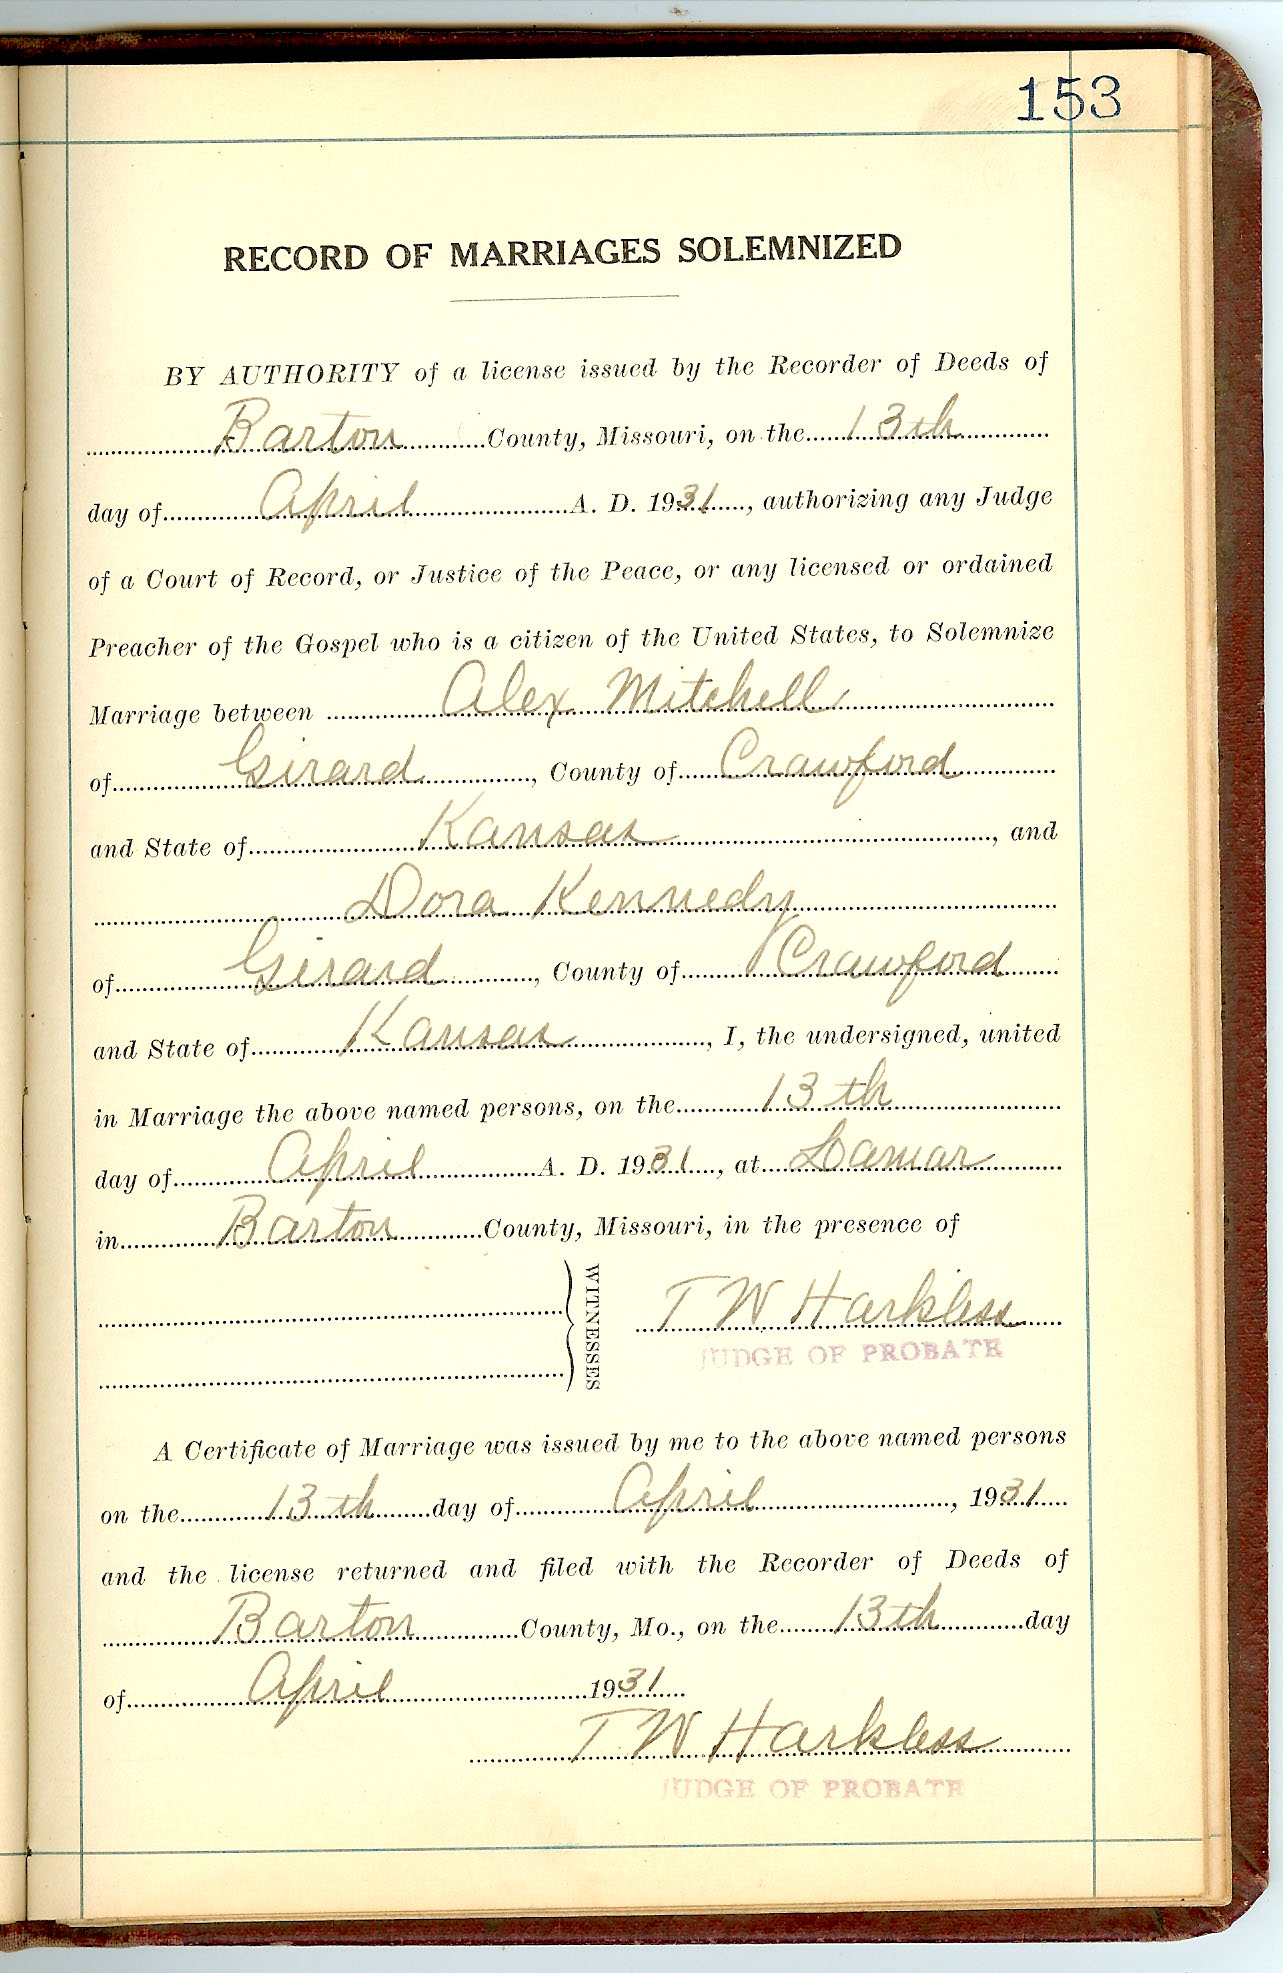 153
RECORD OF MARRIAGES SOLEMNIZED
BY AUTHORITY of a license issued by the Recorder of Deeds of
Barton County, Missouri, on the 13th
day of April A. D. 1931, authorizing any Judge
of a Court of Record, or Justice of the Peace, or any licensed or ordained
Preacher of the Gospel who is a citizen of the United States, to Solemnize
Marriage between Alex Mitchell
of Girard, County of Crawford
and State of Kansas, and
Dora Kennedy
of Girard, County of Crawford
and State of Kansas, I, the undersigned, united
in Marriage the above named persons, on the 13th
day of April A. D. 1931, at Lamar
in Barton County, Missouri, in the presence of
WITNESSES
T W Harkless
JUDGE OF PROBATE
A Certificate of Marriage was issued by me to the above named persons
on the 13th day of April, 1931
and the license returned and filed with the Recorder of Deeds of
Barton County, Mo., on the 13th day
of April 1931
T W Harkless
JUDGE OF PROBATE